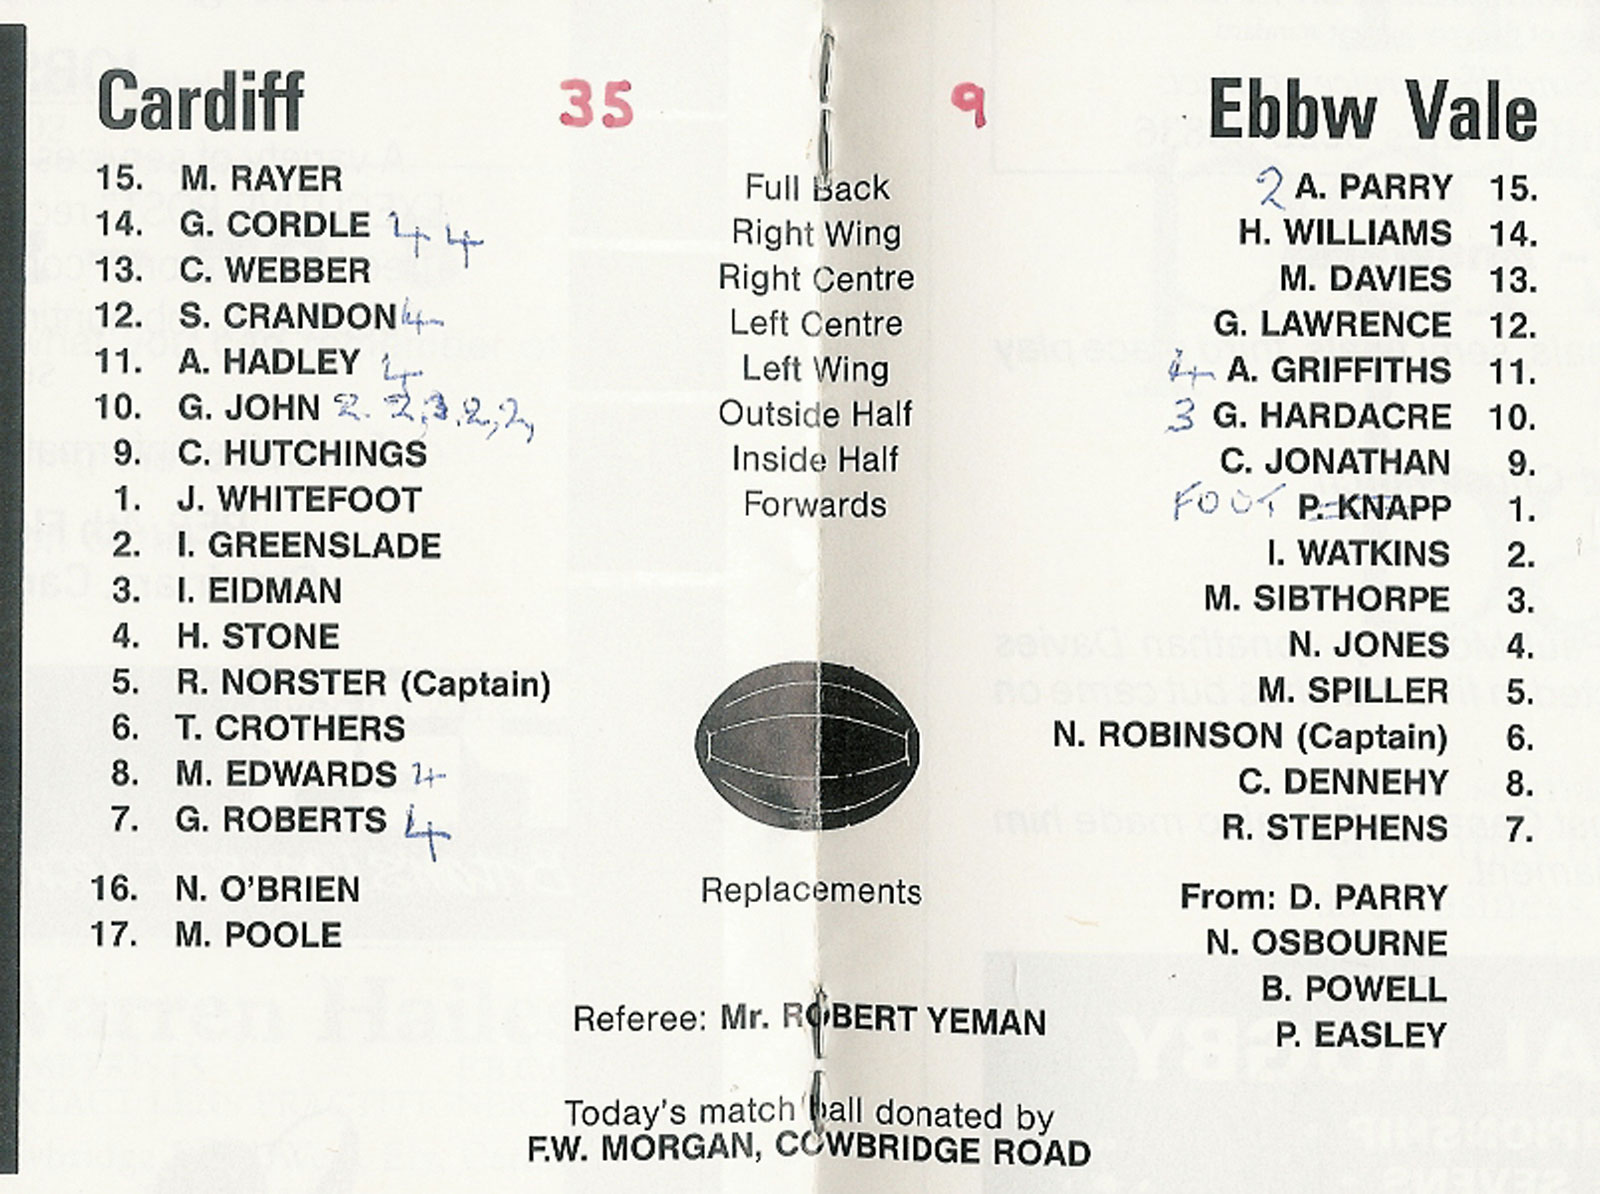 Cardiff 35 9 Ebbw Vale
15. M. RAYER Full Back 2 A. PARRY 15.
14. G. CORDLE 4 4 Right Wing H. WILLIAMS 14.
13. C. WEBBER Right Centre M. DAVIES 13.
12. S. CRANDON 4 Left Centre G. LAWRENCE 12.
11. A. HADLEY 4 Left Wing 4 A. GRIFFITHS 11.
10. G. JOHN 2. 2,3.2,2, Outside Half 3 G. HARDACRE 10.
9. C. HUTCHINGS Inside Half C. JONATHAN 9.
1. J. WHITEFOOT Forwards FOOT P. KNAPP 1.
2. I. GREENSLADE I. WATKINS 2.
3. I. EIDMAN M. SIBTHORPE 3.
4. H. STONE N. JONES 4.
5. R. NORSTER (Captain) M. SPILLER 5.
6. T. CROTHERS N. ROBINSON (Captain) 6.
8. M. EDWARDS 4 C. DENNEHY 8.
7. G. ROBERTS 4 R. STEPHENS 7.
16. N. O'BRIEN Replacements From: D. PARRY
17. M. POOLE N. OSBOURNE
B. POWELL
Referee: Mr. ROBERT YEMAN P. EASLEY
Today's match ball donated by
F.W. MORGAN, COWBRIDGE ROAD